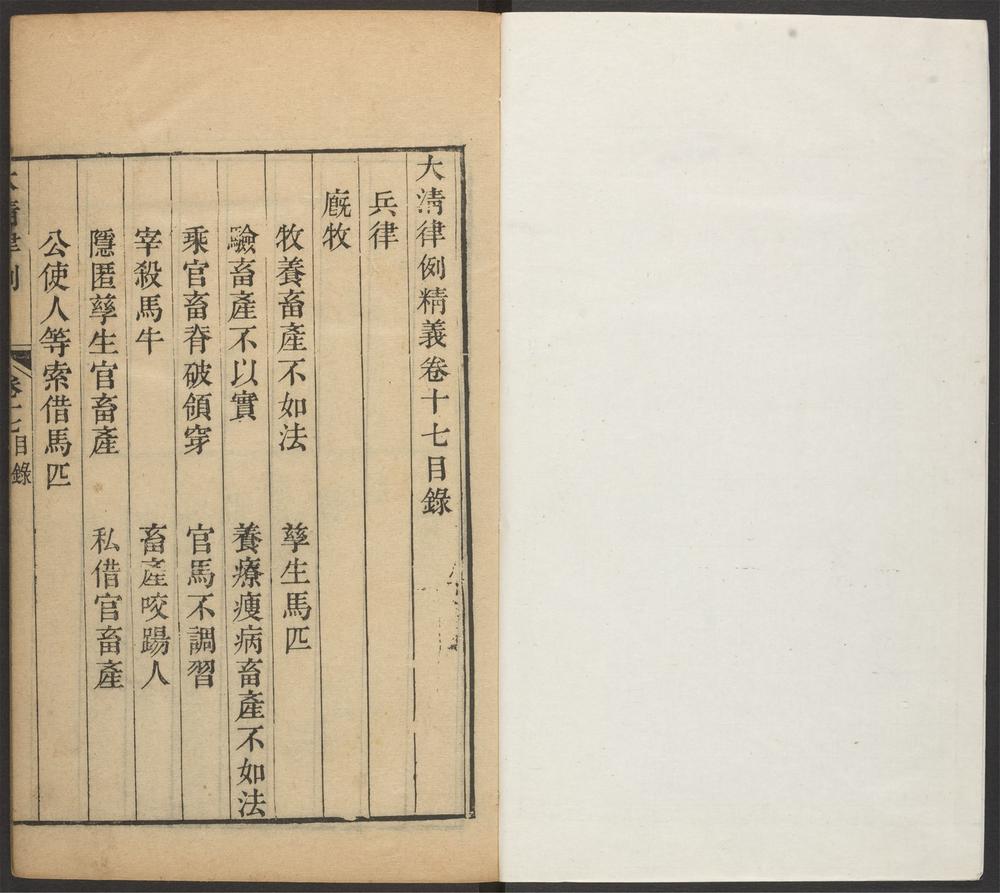 大清律例精義卷十七目錄
兵律
廐牧
牧養畜產不如法　孳生馬匹
驗畜產不以實　養療瘦病畜產不如法
乘官畜脊破領穿　官馬不調習
宰殺馬牛　畜產咬踢人
隱匿孳生官畜產　私借官畜產
公使人等索借馬匹
大清律例　卷十七目錄